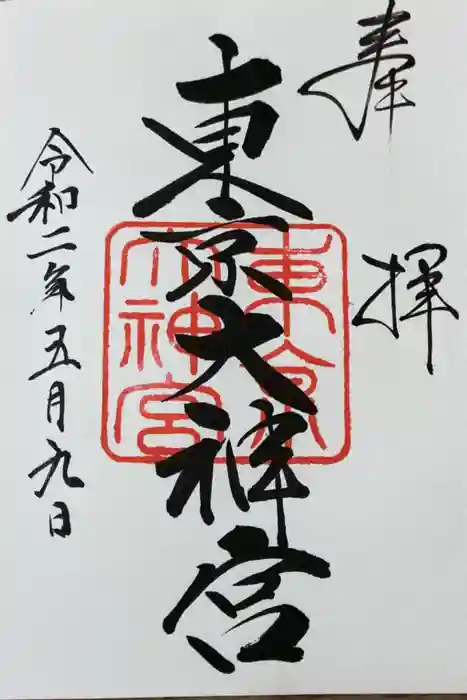 奉拝
東京大神宮
東京
大神宮
令和二年五月九日